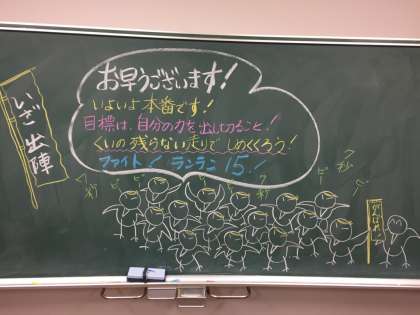 お早うございます!
いよいよ本番です!
目標は、自分の力を出し切ること!
くいの残らない走りでしめくくろう!
ファイト! ランラン15!!
いざ出陣